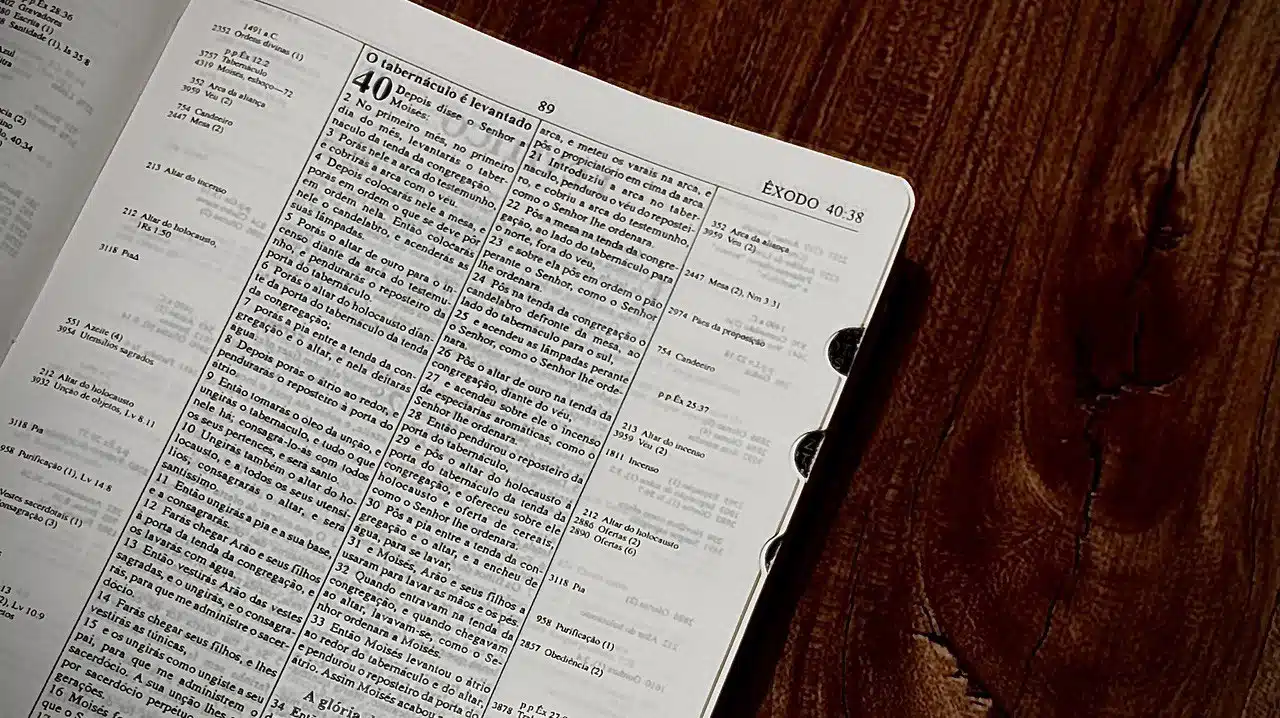 89
ÊXODO 40:38
1491 a.C.
2352 Ordens divinas (1)
p.p Êx 12:2
3757 Tabernáculo
4319 Moisés, esboço—72
352 Arca da aliança
3959 Véu (2)
754 Candeeiro
2447 Mesa (2)
213 Altar do incenso
212 Altar do holocausto,
1Rs 1.50
3118 Pia
551 Azeite (4)
3954 Utensílios sagrados
212 Altar do holocausto
3932 Unção de objetos, Lv 8 11
3118 Pia
958 Purificação (1), Lv 14 8
O tabernáculo é levantado
40 Depois disse o Senhor a
Moisés:
2 No primeiro mês, no primeiro
dia do mês, levantarás o taber-
náculo da tenda da congregação.
3 Porás nele a arca do testemunho,
e cobrirás a arca com o véu.
4 Depois colocarás nele a mesa, e
porás em ordem o que se deve pôr
em ordem nela. Então colocarás
nele o candelabro, e acenderás as
suas lâmpadas.
5 Porás o altar de ouro para o in-
censo diante da arca do testemu-
nho, e pendurarás o reposteiro da
porta do tabernáculo.
6 Porás o altar do holocausto dian-
te da porta do tabernáculo da tenda
da congregação;
7 porás a pia entre a tenda da con-
gregação e o altar, e nela deitarás
água.
8 Depois porás o átrio ao redor, e
pendurarás o reposteiro à porta do
átrio.
9 Então tomarás o óleo da unção, e
ungirás o tabernáculo, e tudo o que
nele há; consagra-lo-ás com todos
os seus pertences, e será santo.
10 Ungirás também o altar do ho-
locausto, e a todos os seus utensí-
lios; consagrarás o altar, e será
santíssimo.
11 Então ungirás a pia e a sua base,
e a consagrarás.
12 Farás chegar Arão e seus filhos
à porta da tenda da congregação, e
os lavarás com água.
13 Então vestirás Arão das vestes
sagradas, e o ungirás, e o consagra-
rás, para que me administre o sacer-
dócio.
14 Farás chegar seus filhos, e lhes
vestirás as túnicas.
15 e os ungirás como ungiste a seu
pai, para que me administrem o
sacerdócio. A sua unção lhes
por sacerdócio perpétuo
gerações.
16 Moisés
que o Sen
arca, e meteu os varais na arca, e
pôs o propiciatório em cima da arca
21 Introduziu a arca no taber-
náculo, pendurou o véu do repostei-
ro, e cobriu a arca do testemunho,
como o Senhor lhe ordenara.
22 Pôs a mesa na tenda da congre-
gação, ao lado do tabernáculo para
o norte, fora do véu,
23 e sobre ela pôs em ordem o pão
perante o Senhor, como o Senhor
lhe ordenara.
24 Pôs na tenda da congregação o
candelabro defronte da mesa, ao
lado do tabernáculo para o sul,
25 e acendeu as lâmpadas perante
o Senhor, como o Senhor lhe orde-
nara.
26 Pôs o altar de ouro na tenda da
congregação, diante do véu,
27 e acendeu sobre ele o incenso
de especiarias aromáticas, como o
Senhor lhe ordenara.
28 Então pendurou o reposteiro da
porta do tabernáculo.
29 e pôs o altar do holocausto à
porta do tabernáculo da tenda da
congregação, e ofereceu sobre ele
holocausto e oferta de cereais,
como o Senhor lhe ordenara.
30 Pôs a pia entre a tenda da con-
gregação e o altar, e a encheu de
água, para se lavar,
31 e Moisés, Arão e seus filhos a
usaram para lavar as mãos e os pés.
32 Quando entravam na tenda da
congregação, e quando chegavam
ao altar, lavavam-se, como o Se-
nhor ordenara a Moisés.
33 Então Moisés levantou o átrio
ao redor do tabernáculo e do altar,
e pendurou o reposteiro da porta do
átrio. Assim Moisés acabou
A glória
34 Então
352 Arca da aliança
3959 Véu (2)
2447 Mesa (2), Nm 3 31
2974 Pães da proposição
754 Candeeiro
p p Êx 25.37
213 Altar do incenso
3959 Véu (2)
1811 Incenso
212 Altar do holocausto
2886 Ofertas (2)
2890 Ofertas (6)
3118 Pia
958 Purificação (1)
2857 Obediência (2)
p.p Êx 27
3878